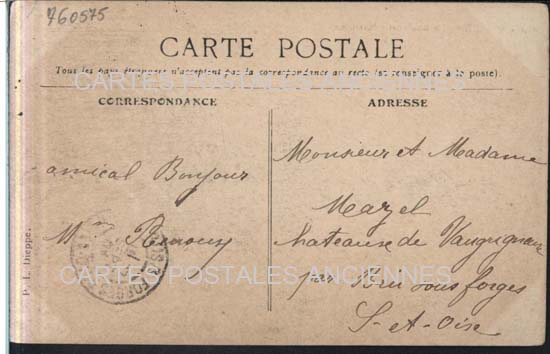 760575
CARTE POSTALE
Tous les pays étrangers n'acceptent pas la correspondance au recto (se renseigner à la poste).
CARTES POSTALES ANCIENNES
CORRESPONDANCE
ADRESSE
amical Bonjour
Monsieur et Madame
Mazel
Chateau de
par Briis sous forges
S-et-Oise
P. L. Dieppe.
CARTES POSTALES ANCIENNES